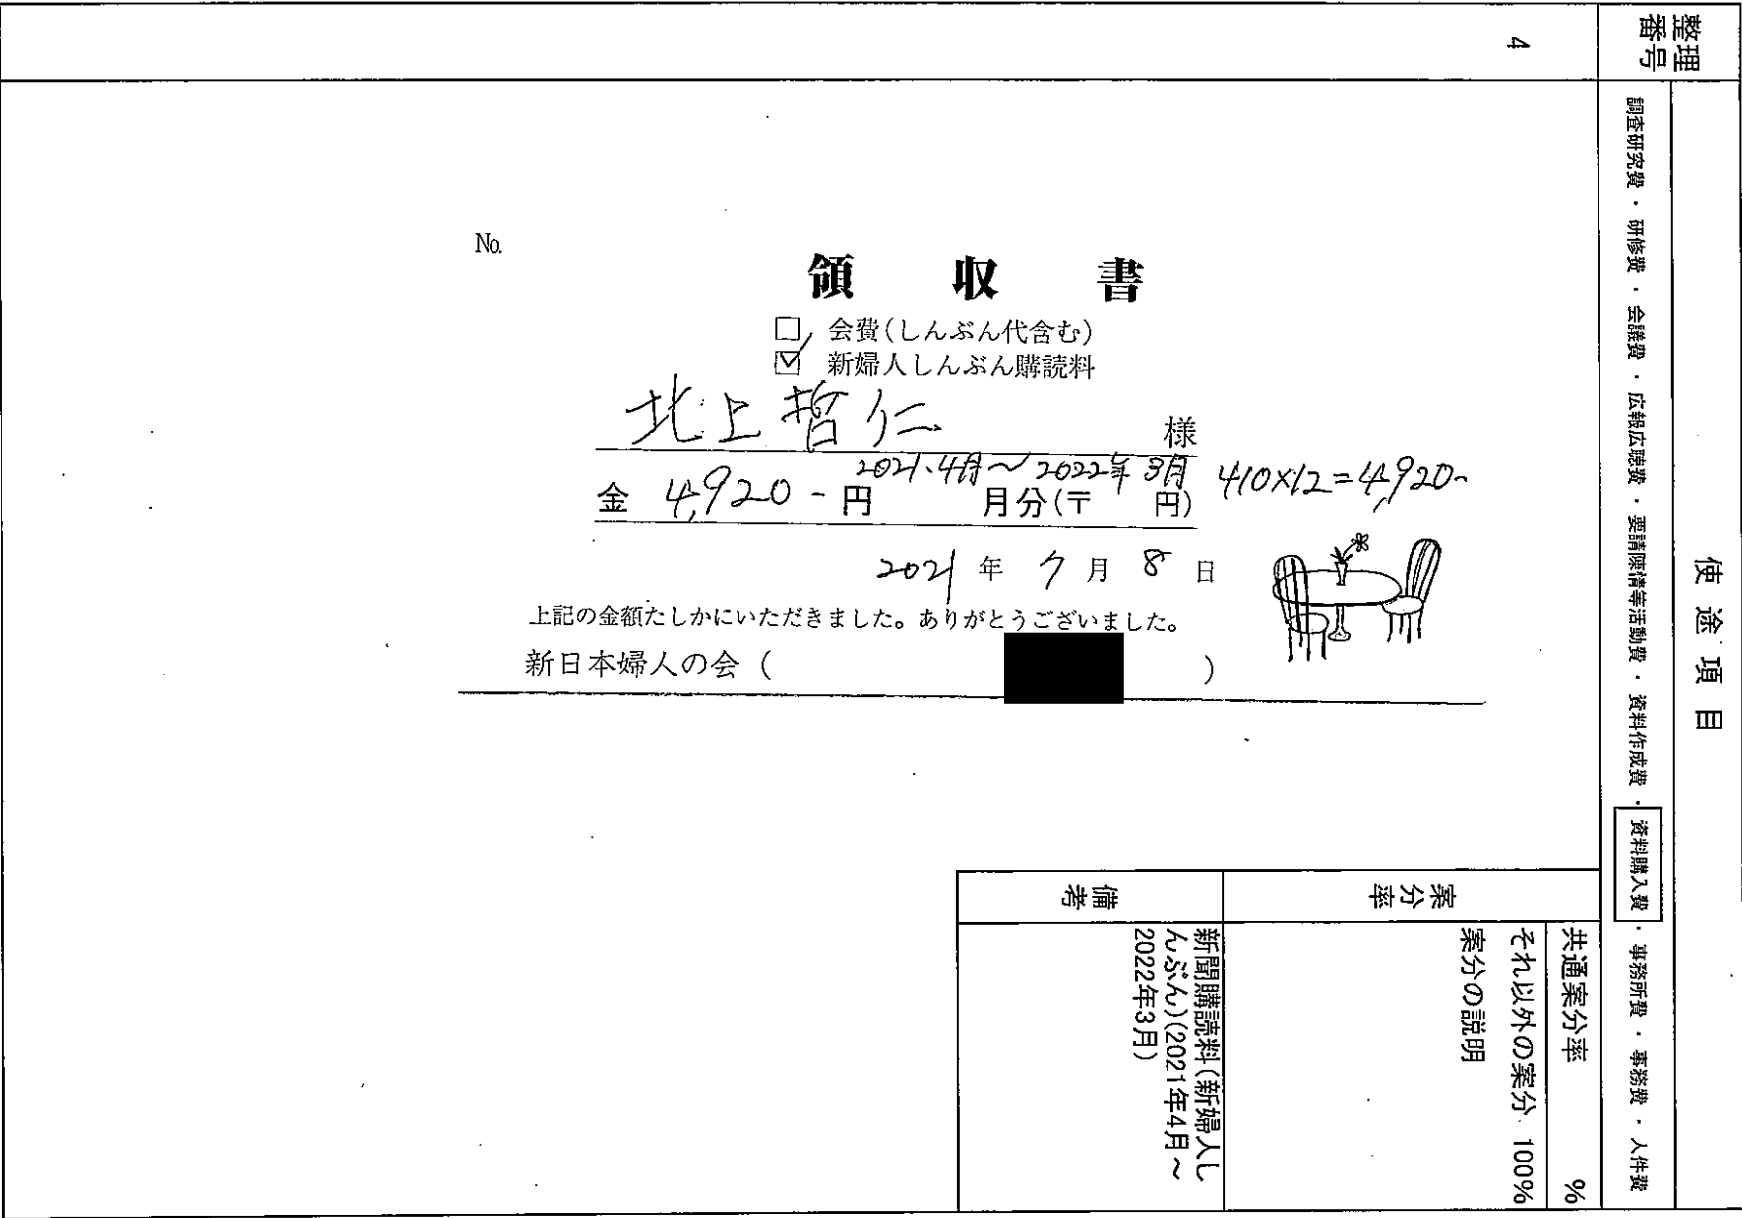 整理番号
4
使途項目
調査研究費・研修費・会議費・広報広聴費・要請陳情等活動費・資料作成費・資料購入費・事務所費・事務費・人件費
No.
領収書
□ 会費(しんぶん代含む)
☑ 新婦人しんぶん購読料
北上哲仁 様
2021.4月～2022年3月
金 4,920-円 月分(〒 円) 410×12=4,920-
2021年7月8日
上記の金額たしかにいただきました。ありがとうございました。
新日本婦人の会( )
案分率
共通案分率 %
それ以外の案分 100%
案分の説明
備考
新聞購読料(新婦人し
んぶん)(2021年4月～
2022年3月)